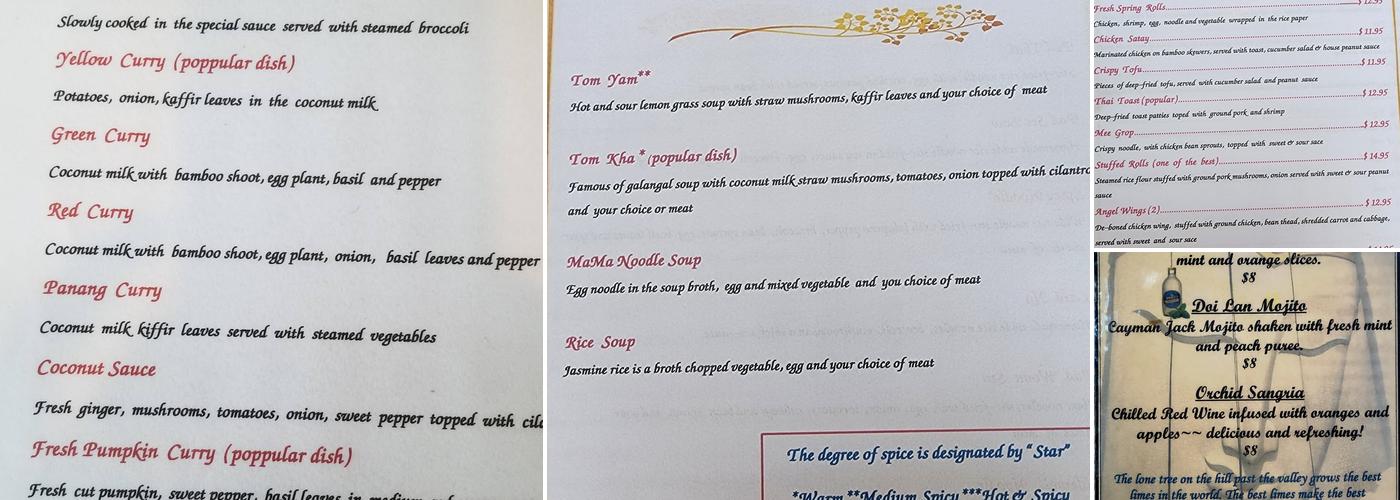 Slowly cooked in the special sauce served with steamed broccoli
Yellow Curry (poppular dish)
Potatoes, onion, kaffir leaves in the coconut milk
Green Curry
Coconut milk with bamboo shoot, egg plant, basil and pepper
Red Curry
Coconut milk with bamboo shoot, egg plant, onion, basil leaves and pepper
Panang Curry
Coconut milk kiffir leaves served with steamed vegetables
Coconut Sauce
Fresh ginger, mushrooms, tomatoes, onion, sweet pepper topped with
Fresh Pumpkin Curry (poppular dish)
Fresh cut pumpkin, sweet pepper, basil leaves in medium
Tom Yam**
Hot and sour lemon grass soup with straw mushrooms, kaffir leaves and your choice of meat
Tom Kha * (popular dish)
Famous of galangal soup with coconut milk straw mushrooms, tomatoes, onion topped with cilantro
and your choice or meat
MaMa Noodle Soup
Egg noodle in the soup broth, egg and mixed vegetable and you choice of meat
Rice Soup
Jasmine rice is a broth chopped vegetable, egg and your choice of meat
The degree of spice is designated by "Star"
*Warm **Medium Spicy ***Hot & Spicy
Fresh Spring Rolls $ 12.95
Chicken, shrimp, egg, noodle and vegetable wrapped in the rice paper
Chicken Satay $ 11.95
Marinated chicken on bamboo skewers, served with toast, cucumber salad & house peanut sauce
Crispy Tofu $ 11.95
Pieces of deep-fried tofu, served with cucumber salad and peanut sauce
Thai Toast (popular) $ 12.95
Deep-fried toast patties toped with ground pork and shrimp
Mee Grop $ 12.95
Crispy noodle, with chicken bean sprouts, topped with sweet & sour sace
Stuffed Rolls (one of the best) $ 14.95
Steamed rice flour stuffed with ground pork mushrooms, onion served with sweet & sour peanut
sauce
Angel Wings (2) $ 12.95
De-boned chicken wing, stuffed with ground chicken, bean thead, shredded carrot and cabbage,
served with sweet and sour sace
mint and orange slices.
$8
Doi Lan Mojito
Cayman Jack Mojito shaken with fresh mint
and peach puree.
$8
Orchid Sangria
Chilled Red Wine infused with oranges and
apples~~ delicious and refreshing!
$8
The lone tree on the hill past the valley grows the best
limes in the world. The best limes make the best